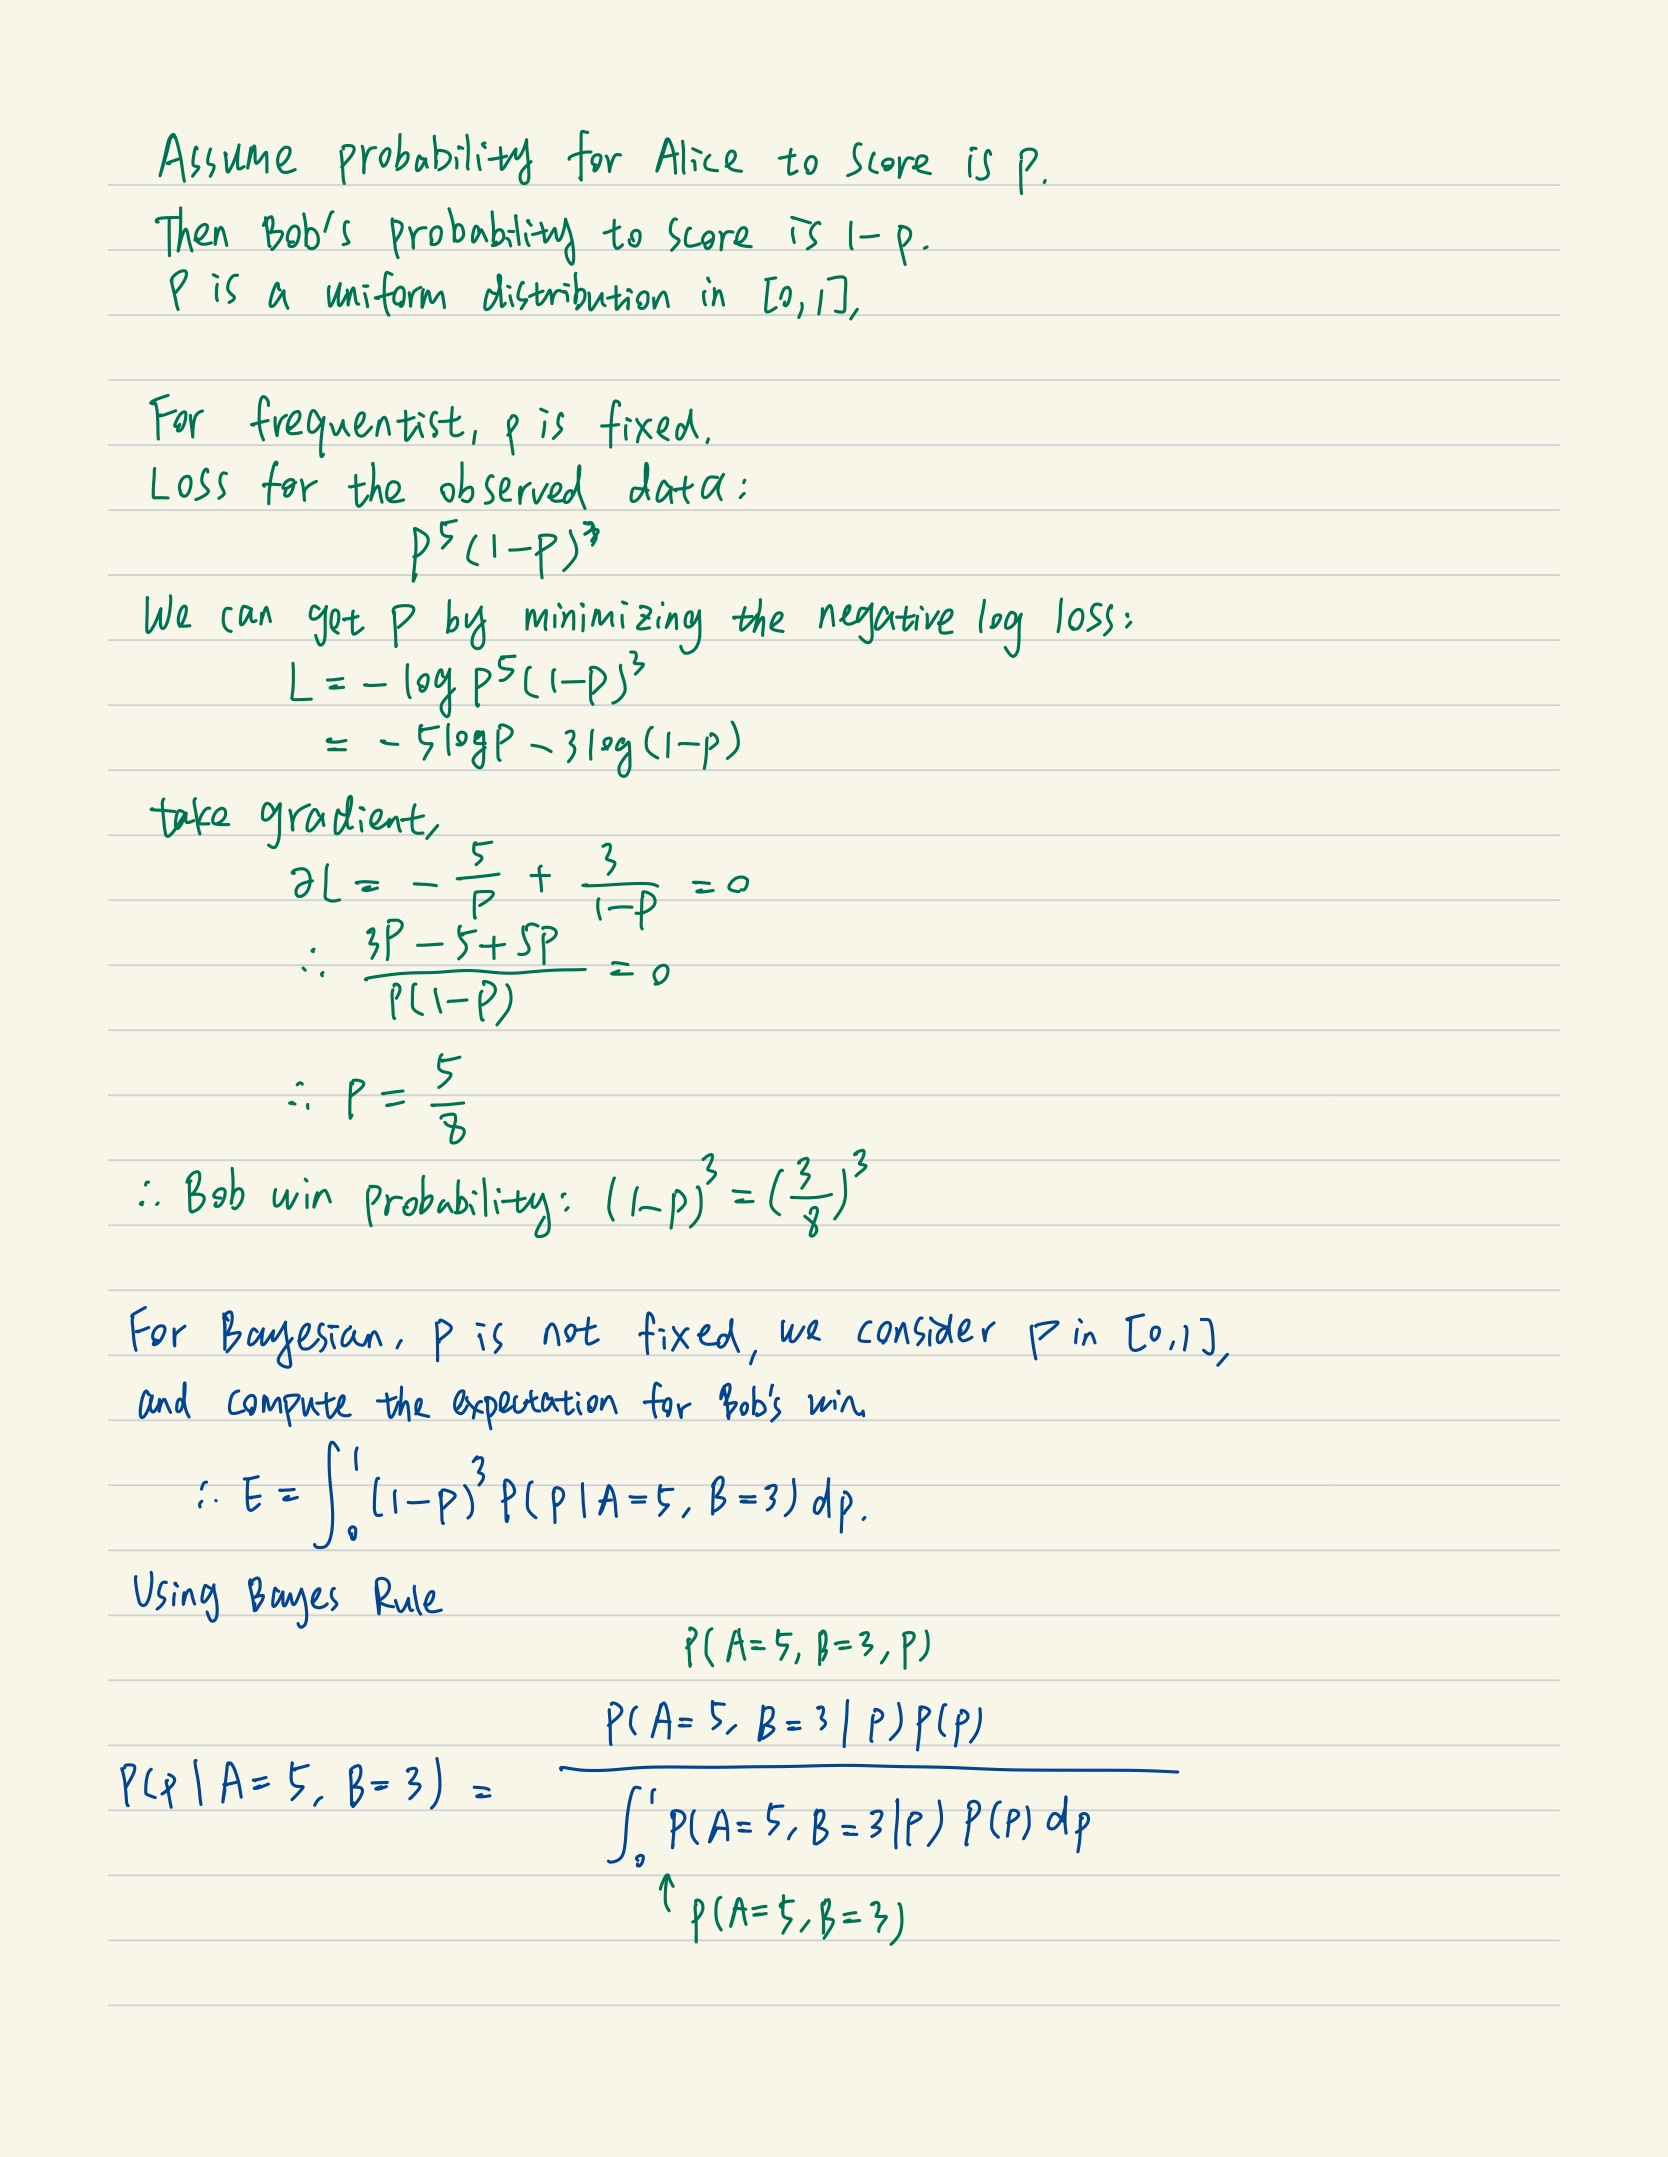 Assume probability for Alice to score is p.
Then Bob's probability to score is 1-p.
P is a uniform distribution in [0,1],
For frequentist, p is fixed.
Loss for the observed data:
p^5(1-p)^3
We can get p by minimizing the negative log loss:
L = - log p^5(1-p)^3
= - 5logp - 3log(1-p)
take gradient,
∂L = - 5/p + 3/(1-p) = 0
∴ (3p - 5 + 5p)/(p(1-p)) = 0
∴ p = 5/8
∴ Bob win probability: (1-p)^3 = (3/8)^3
For Bayesian, p is not fixed, we consider p in [0,1],
and compute the expectation for Bob's win.
∴ E = ∫_0^1 (1-p)^3 P(p|A=5, B=3) dp.
Using Bayes Rule
P(A=5, B=3, p)
P(p|A=5, B=3) = P(A=5, B=3|p)P(p) / ∫_0^1 P(A=5, B=3|p) P(p) dp
↑ P(A=5, B=3)